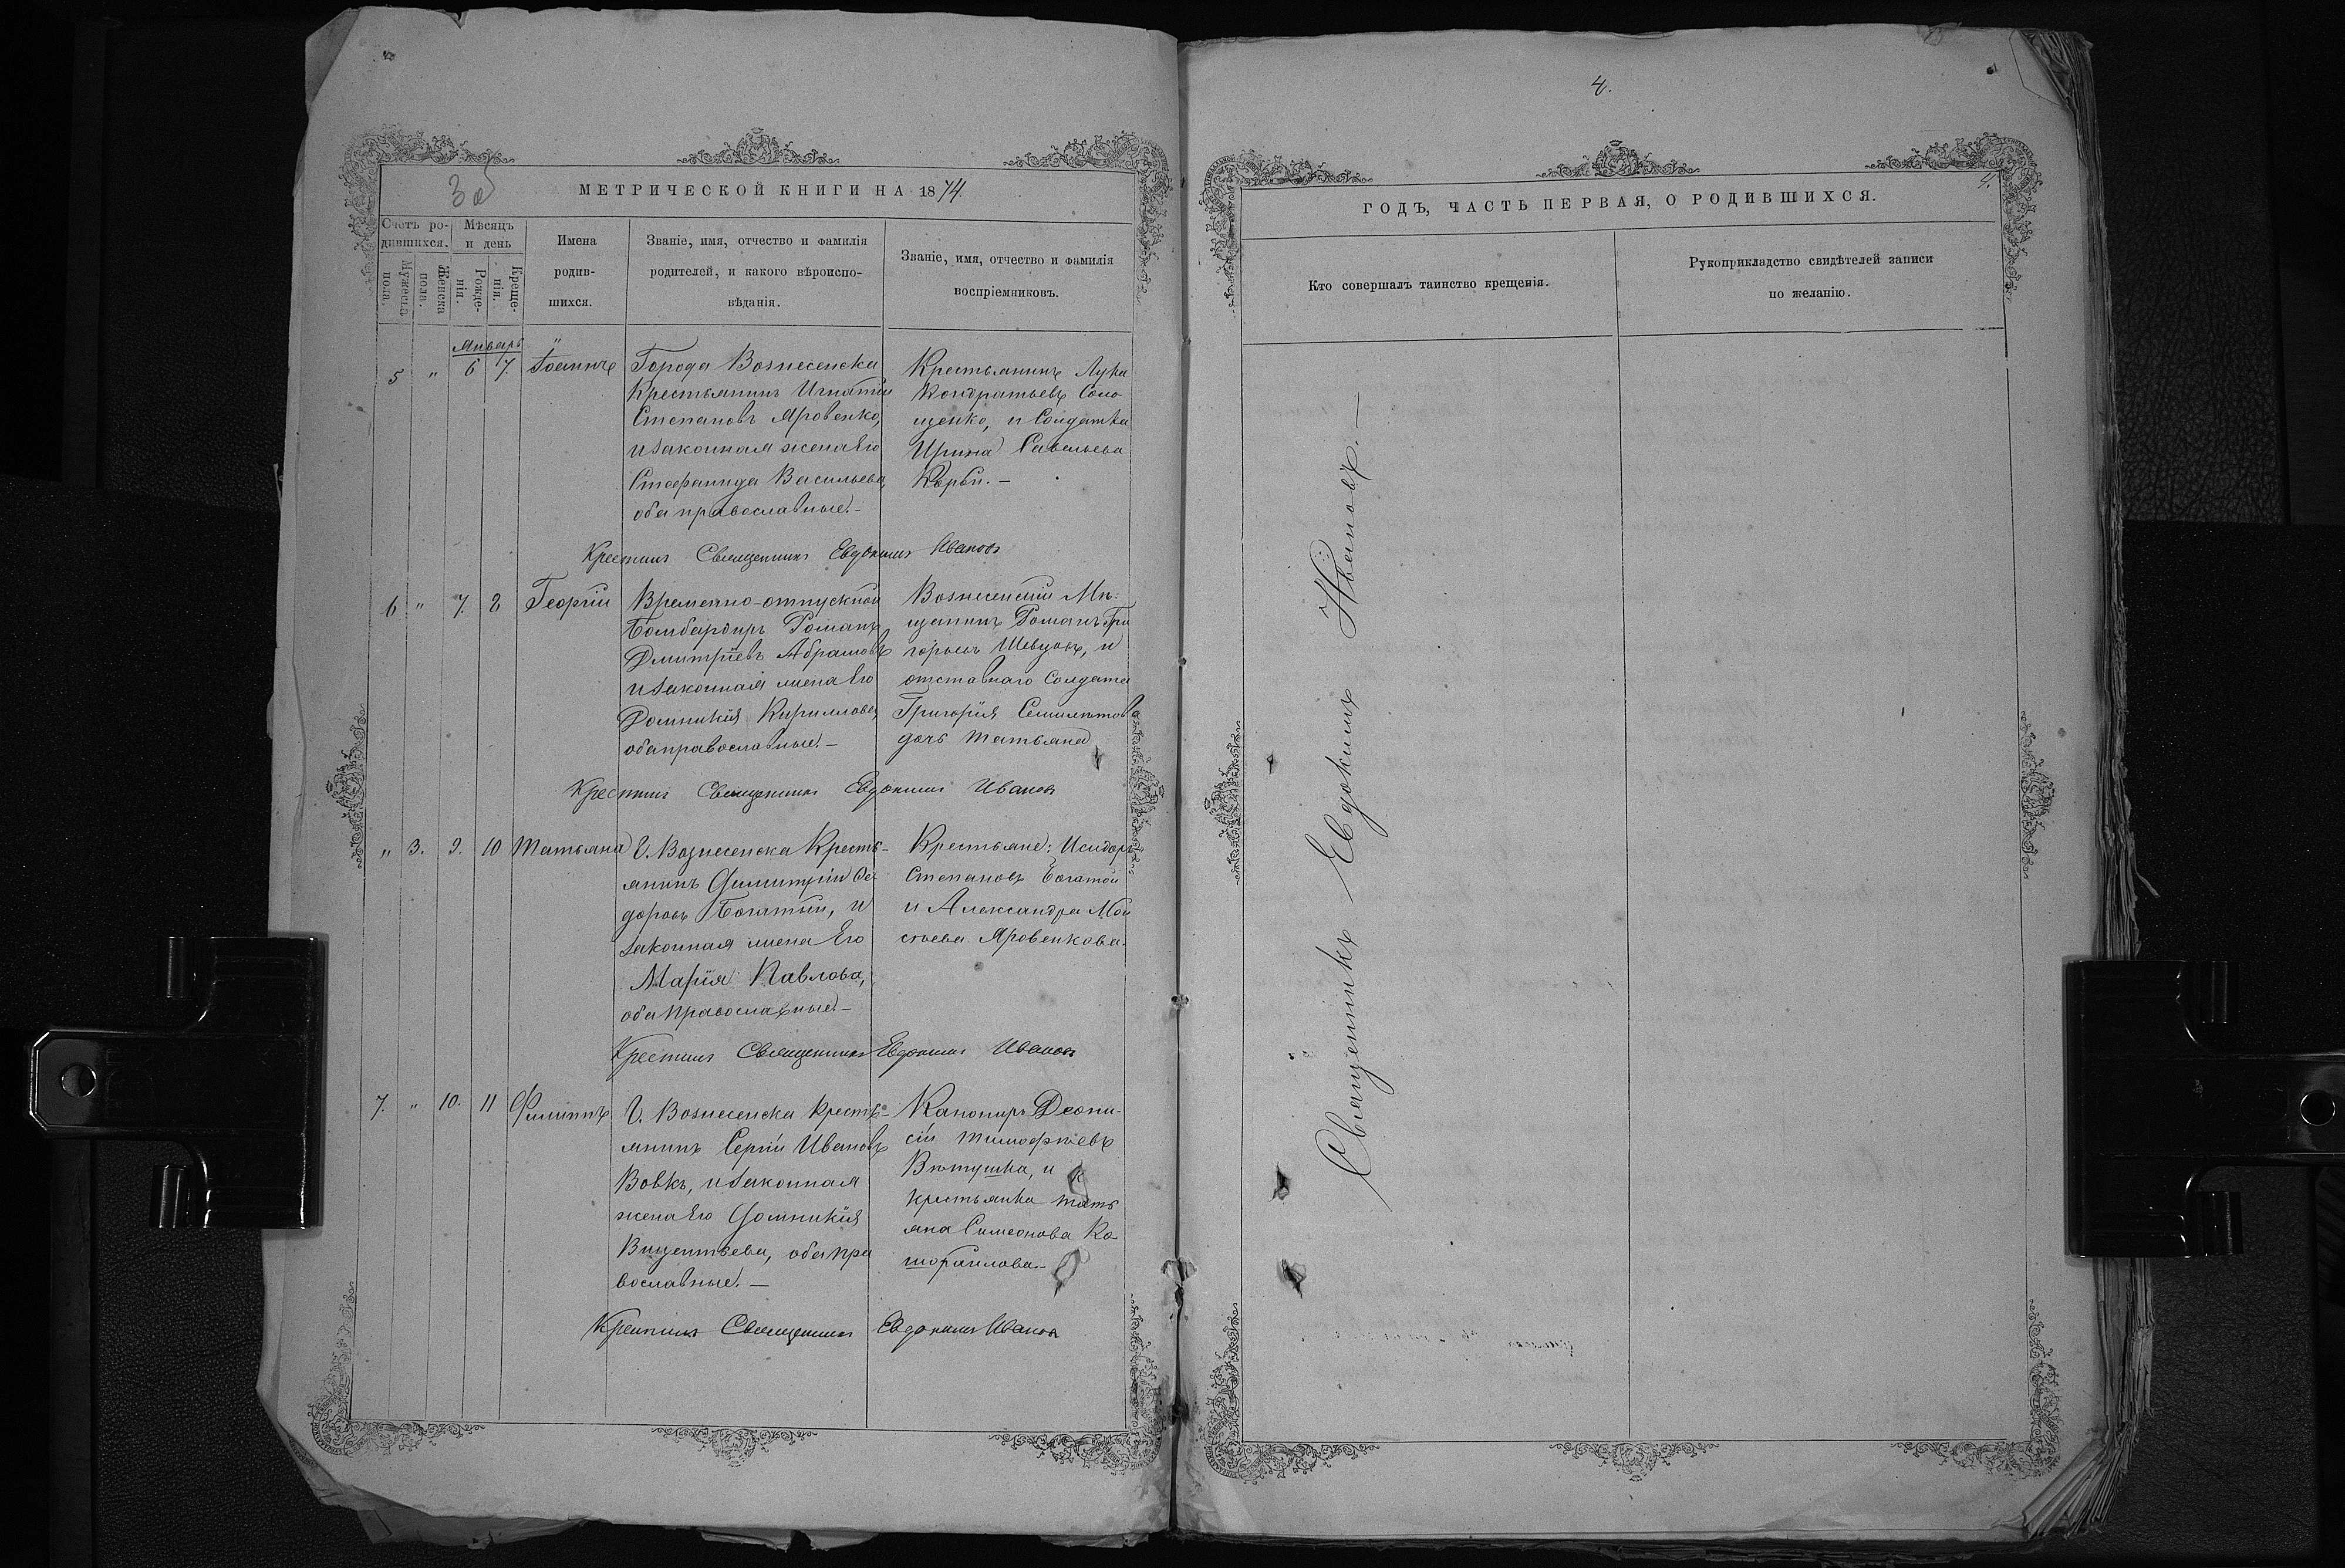 3 об
МЕТРИЧЕСКОЙ КНИГИ НА 1874
Счетъ ро-
дившихся.
Мужеска
пола.
Женска
пола.
Мѣсяцъ
и день
Рожде-
нія.
Креще-
нія.
Имена
родив-
шихся.
Званіе, имя, отчество и фамилія
родителей, и какого вѣроиспо-
вѣданія.
Званіе, имя, отчество и фамилія
воспріемниковъ.
Январь
5 " 6 7. Іоаннъ
Города Вознесенска
Крестьянинъ Игнатій
Степановъ Яровенко,
и законная жена его
Стефанида Васильева,
оба православные.–
Крестьянинъ Лука
Кондратьевъ Соло-
щенко, и Солдатка
Ирина Савельева
Крестилъ Священникъ Евдокимъ Ивановъ
6 " 7. 8 Георгій
Временно-отпускной
Бомбардиръ Романъ
Дмитріевъ Абрамовъ
и законная жена его
Домникія Кириллова,
оба православные.–
Вознесенскій Мѣ-
щанинъ Романъ Гри
горьевъ Шевцовъ, и
отставнаго Солдата
Григорія Семилѣтова
дочь Татьяна
Крестилъ Священникъ Евдокимъ Ивановъ
" 3. 9. 10 Татьяна
Г. Вознесенска Кресть-
янинъ Димитрій Ѳе-
доровъ Богатый, и
законная жена Его
Марія Павлова,
оба православные.–
Крестьяне: Исидоръ
Степановъ Богатый
и Александра Мои
сеева Яровенкова.
Крестилъ Священникъ Евдокимъ Ивановъ
7. " 10. 11 Филиппъ
Г. Вознесенска Кресть-
янинъ Сергій Ивановъ
Вовкъ, и законная
жена Его Домникія
Викентьева, оба пра
вославные.–
Канониръ Деони-
сій Тимофѣевъ
Вѣтушка, и
крестьянка Тать
яна Симеонова Ко
Крестилъ Священникъ Евдокимъ Ивановъ
4.
4.
ГОДЪ, ЧАСТЬ ПЕРВАЯ, О РОДИВШИХСЯ.
Кто совершалъ таинство крещенія.
Рукоприкладство свидѣтелей записи
по желанію.
Священникъ Евдокимъ Ивановъ.–